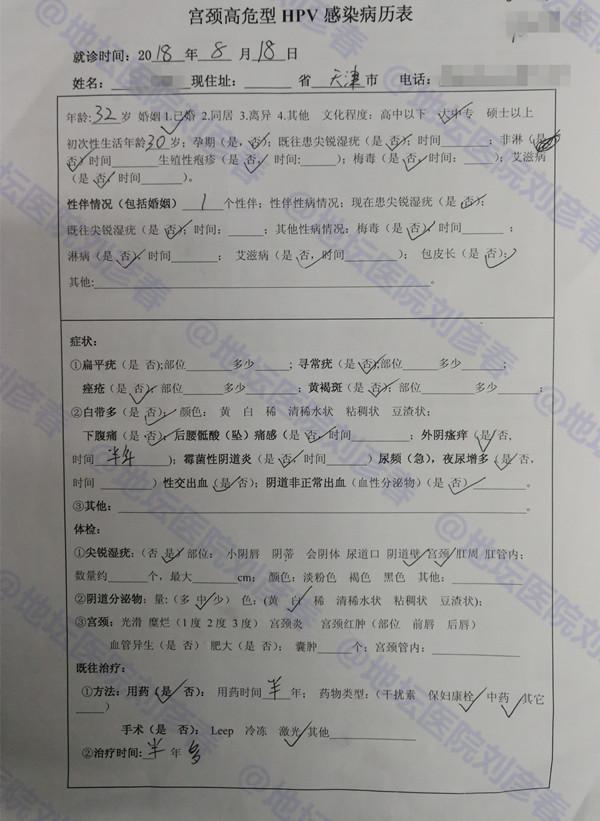 宫颈高危型 HPV 感染病历表
就诊时间：2018 年 8 月 18 日
姓名：________现住址：______省 天津 市 电话：
年龄：32 岁 婚姻 1.已婚 2.同居 3.离异 4.其他 文化程度：高中以下 大中专 硕士以上
初次性生活年龄 30 岁；孕期（是，否）；既往患尖锐湿疣（是 否），时间______；非淋（是
否）时间______生殖性疱疹（是 否， 时间：_____）；梅毒（是 否，时间：_____）；艾滋病
（是 否 时间______）。
性伴情况（包括婚姻） 1 个性伴；性伴性病情况：现在患尖锐湿疣（是 否）；
既往尖锐湿疣（是 否）；时间：_____；其他性病情况：梅毒（是 否），时间______；
淋病（是 否），时间______； 艾滋病（是 否，时间______）； 包皮长（是 否）；
其他：____________。
症状：
①扁平疣（是 否）；部位______多少_____；寻常疣（是 否）；部位______多少_____；
痤疮（是 否）；部位______多少______；黄褐斑（是 否）；部位______多少_____；
②白带多（是 否）； 颜色： 黄 白 稀 清稀水状 粘稠状 豆渣状；
下腹痛（是 否）；后腰骶酸（坠）痛感（是 否，时间________； 外阴瘙痒（是 否，
时间 半年 ）；霉菌性阴道炎（是 否，时间______）尿频（急），夜尿增多（是 否，
时间______）性交出血（是 否）；阴道非正常出血（血性分泌物）（是 否）______。
③其他：____________
体检：
①尖锐湿疣：（否 是）部位： 小阴唇 阴蒂 会阴体 尿道口 阴道壁 宫颈 肛周 肛管内；
数量约_____个，最大_____cm； 颜色：淡粉色 褐色 黑色 其他：________
②阴道分泌物：量：（多 中 少） 色：（黄 白 稀 清稀水状 粘稠状 豆渣状）；
③宫颈：光滑 糜烂（1 度 2 度 3 度） 宫颈炎 宫颈红肿（部位 前唇 后唇）
血管异生（是 否） 肥大（是 否）； 囊肿_____个；宫颈管内：________
既往治疗：
①方法：用药（是 否）： 用药时间 半 年； 药物类型：（干扰素 保妇康栓 中药 其它
____）
手术（是 否）： Leep 冷冻 激光 其他____________
②治疗时间：半 年 多
@地坛医院刘彦春